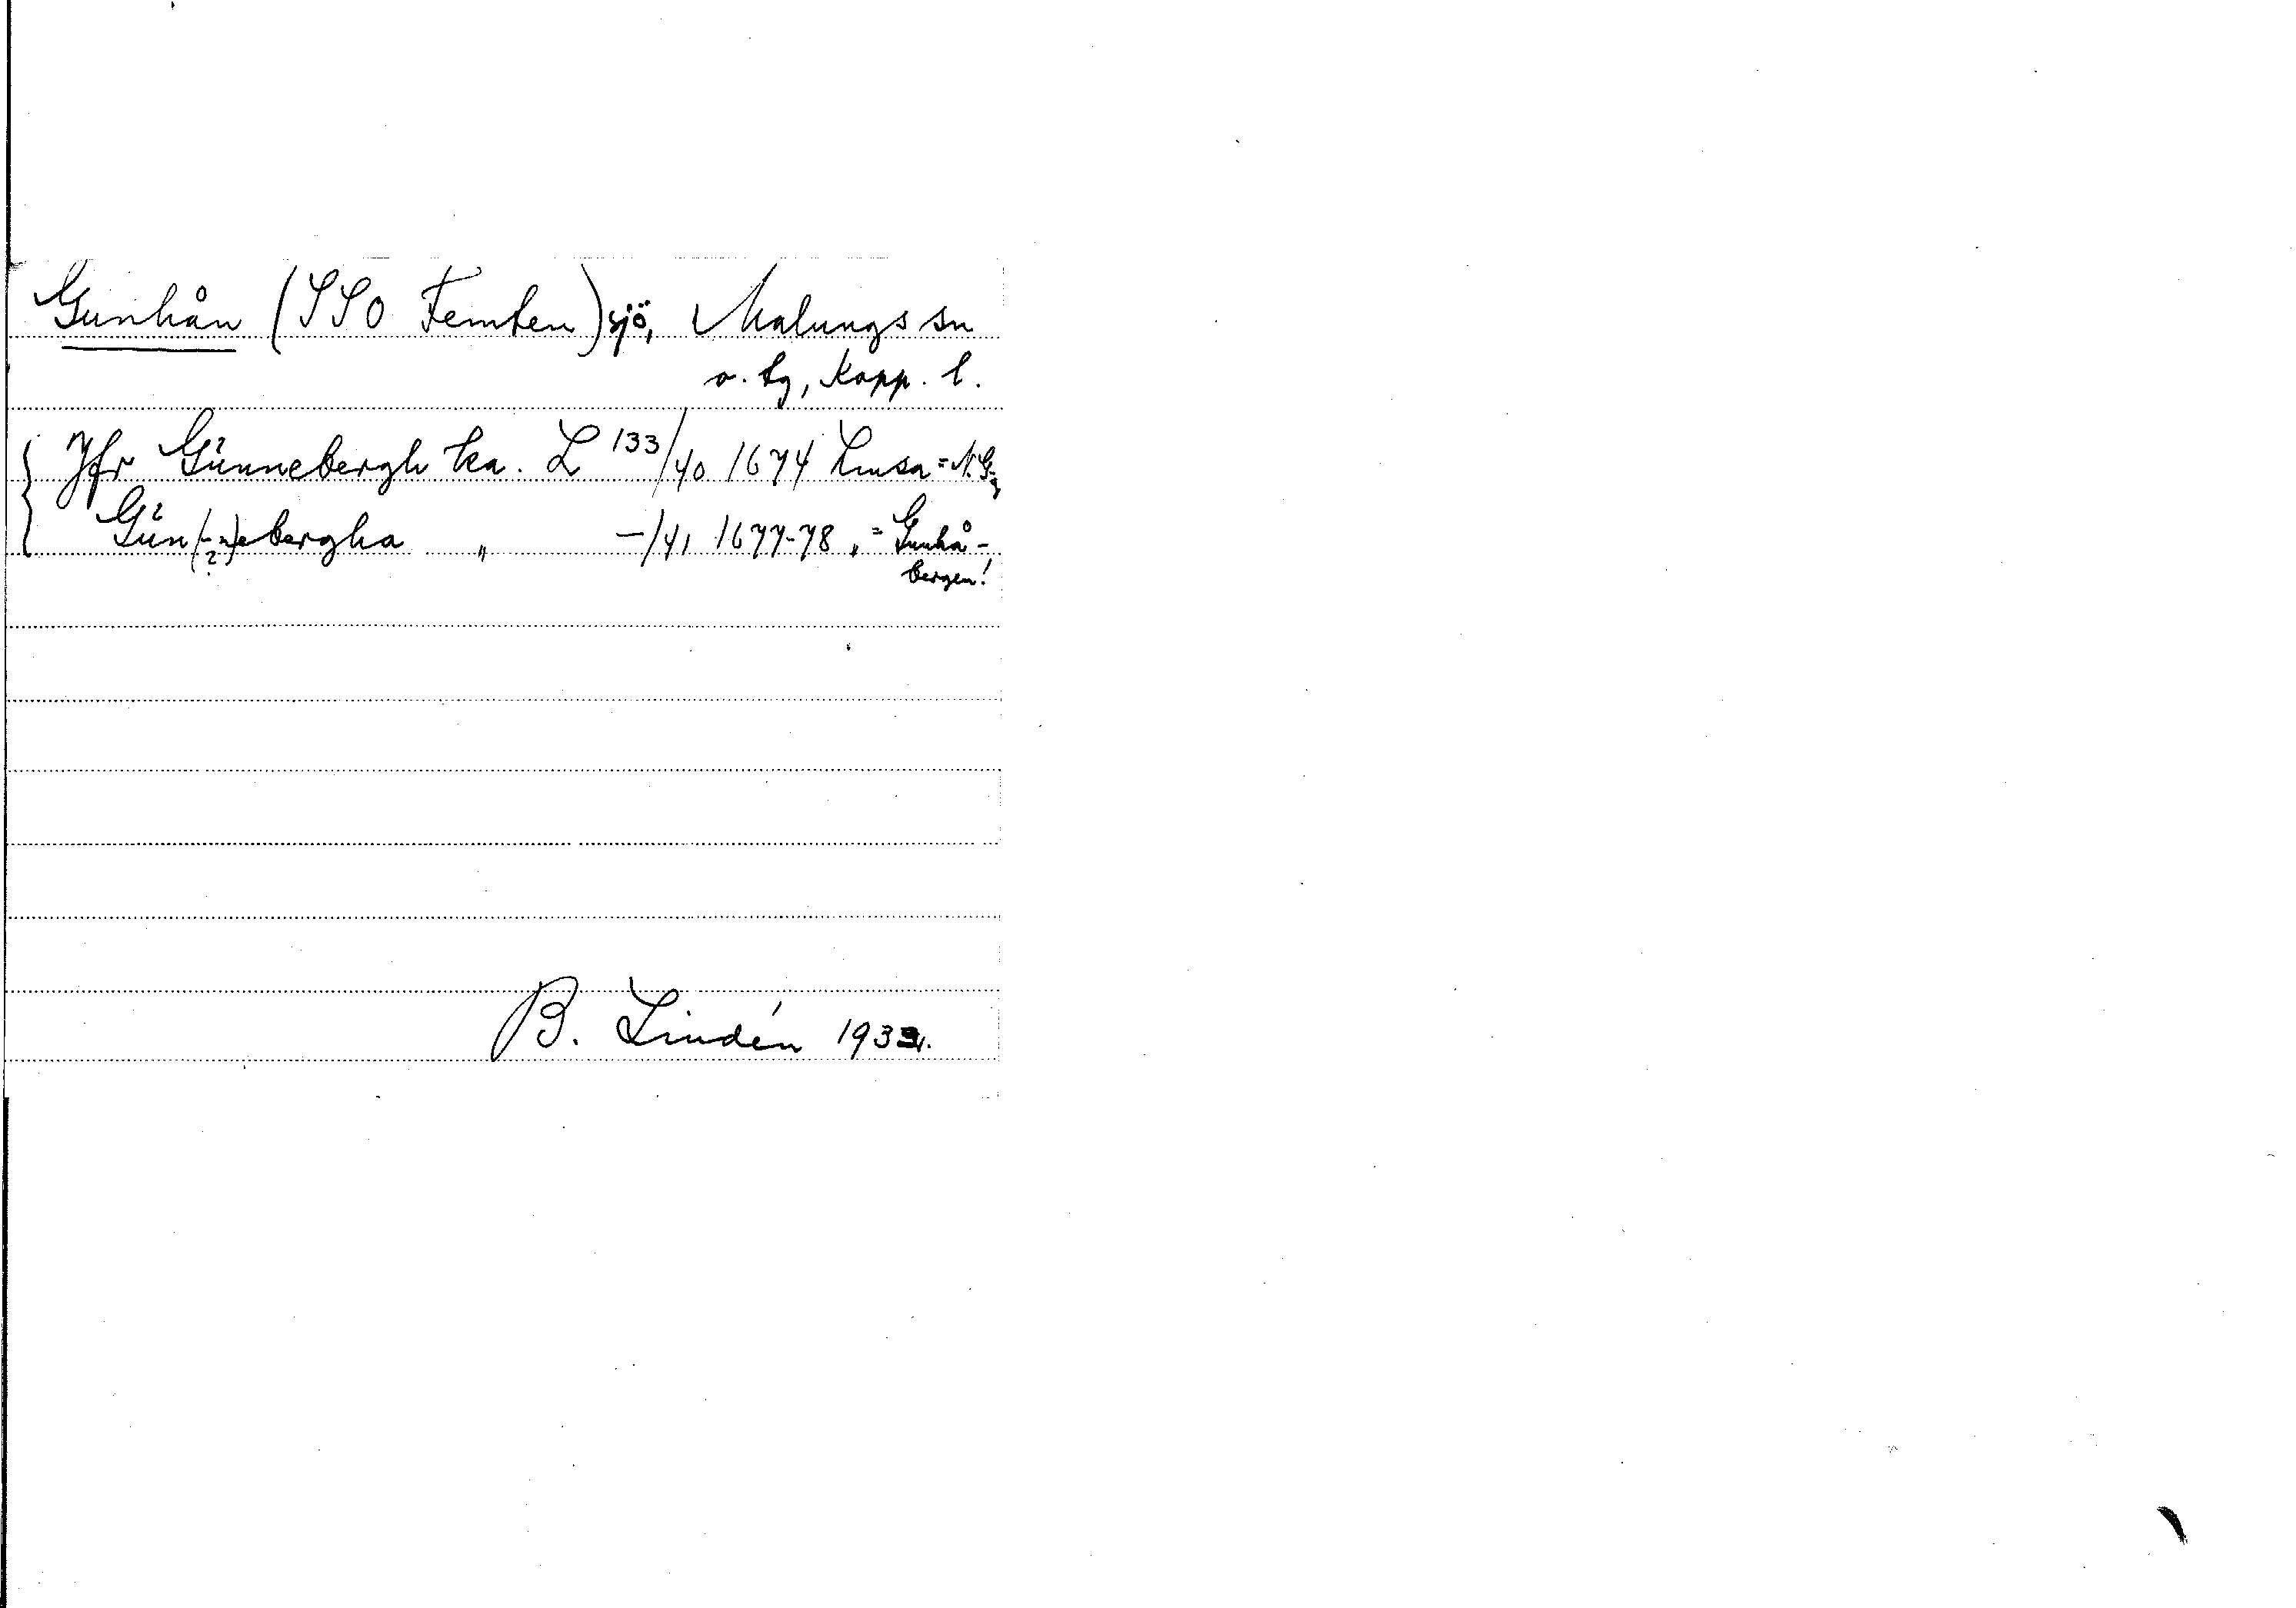 Gunhån (SSO Femten) sjö, Malungs sn
o. tg, Kopp. l.
Jfr Günnebergh ka. L 133/40 1674 Limsa = N. G-
Gün(-n?)ebergha " -/41 1677-78 " = Gunhå-
bergen!
B. Lindén 193